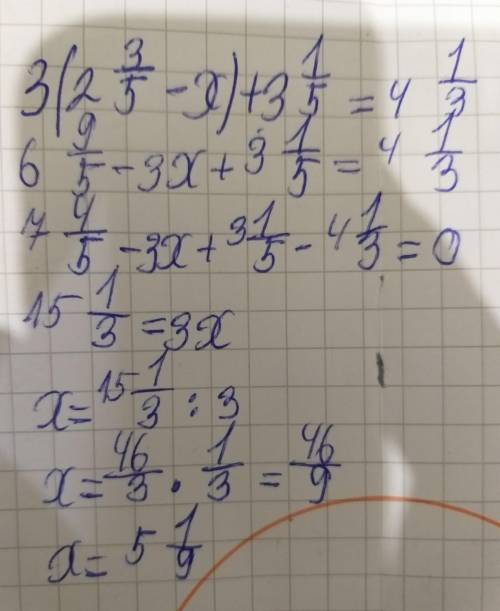 3(2 3/5 - x) + 3 1/5 = 4 1/3
6 9/5 - 3x + 3 1/5 = 4 1/3
7 4/5 - 3x + 3 1/5 - 4 1/3 = 0
15 1/3 = 3x
x = 15 1/3 : 3
x = 46/3 · 1/3 = 46/9
x = 5 1/9